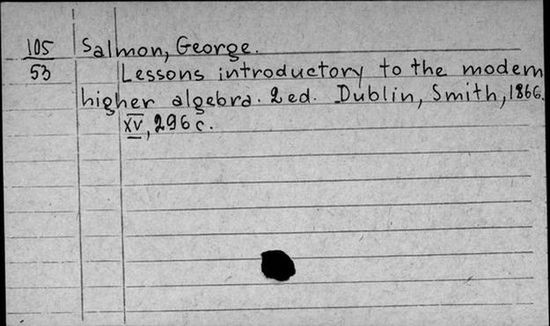 105 Salmon, George.
53 Lessons introductory to the modern
higher algebra. 2 ed. Dublin, Smith, 1866.
XV, 296 c.